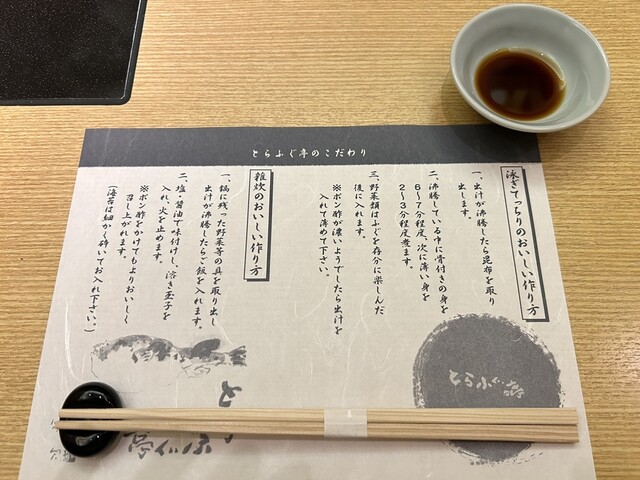 とらふぐ亭のこだわり
泳ぎてっちりのおいしい作り方
一、出汁が沸騰したら昆布を取り
出します。
二、沸騰している中に骨付きの身を
6〜7分程度、次に薄い身を
2〜3分程度煮ます。
三、野菜類はふぐを存分に楽しんだ
後に入れます。
※ポン酢が濃いようでしたら出汁を
入れて薄めて下さい。
雑炊のおいしい作り方
一、鍋に残った野菜等の具を取り出し
出汁が沸騰したらご飯を入れます。
二、塩・醤油で味付けし、溶き玉子を
入れ、火を止めます。
※ポン酢をかけてもよりおいしく
召し上がれます。
(海苔は細かく砕いてお入れ下さい。)
とらふぐ亭